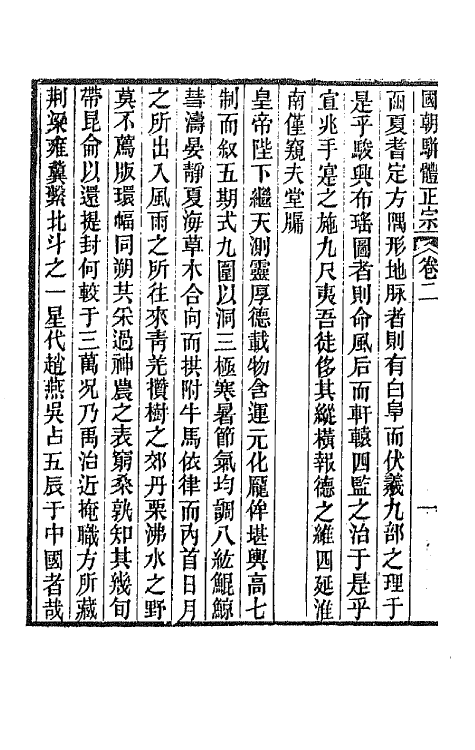 國朝駢體正宗 卷二 一
函夏者定方隅形地脉者則有白阜而伏羲九部之理于
是乎駿興布瑤圖者則命風后而軒轅四監之治于是乎
宣兆手寔之施九尺夷吾徒侈其縱橫報德之維四延淮
南僅窺夫堂牖
皇帝陛下繼天測靈厚德載物含運元化龎侔堪輿高七
制而叙五期式九圍以洞三極寒暑節氣均調八紘鯤鯨
彗濤晏靜夏海草木合向而拱附牛馬依律而內首日月
之所出入風雨之所往來靑羌攢樹之郊丹栗沸水之野
莫不薦版環幅同朔共氽過神農之表窮桑孰知其幾旬
帶昆侖以還提封何較于三萬况乃禹治近掩職方所藏
荆梁雍冀繫北斗之一星代趙燕吳占五辰于中國者哉